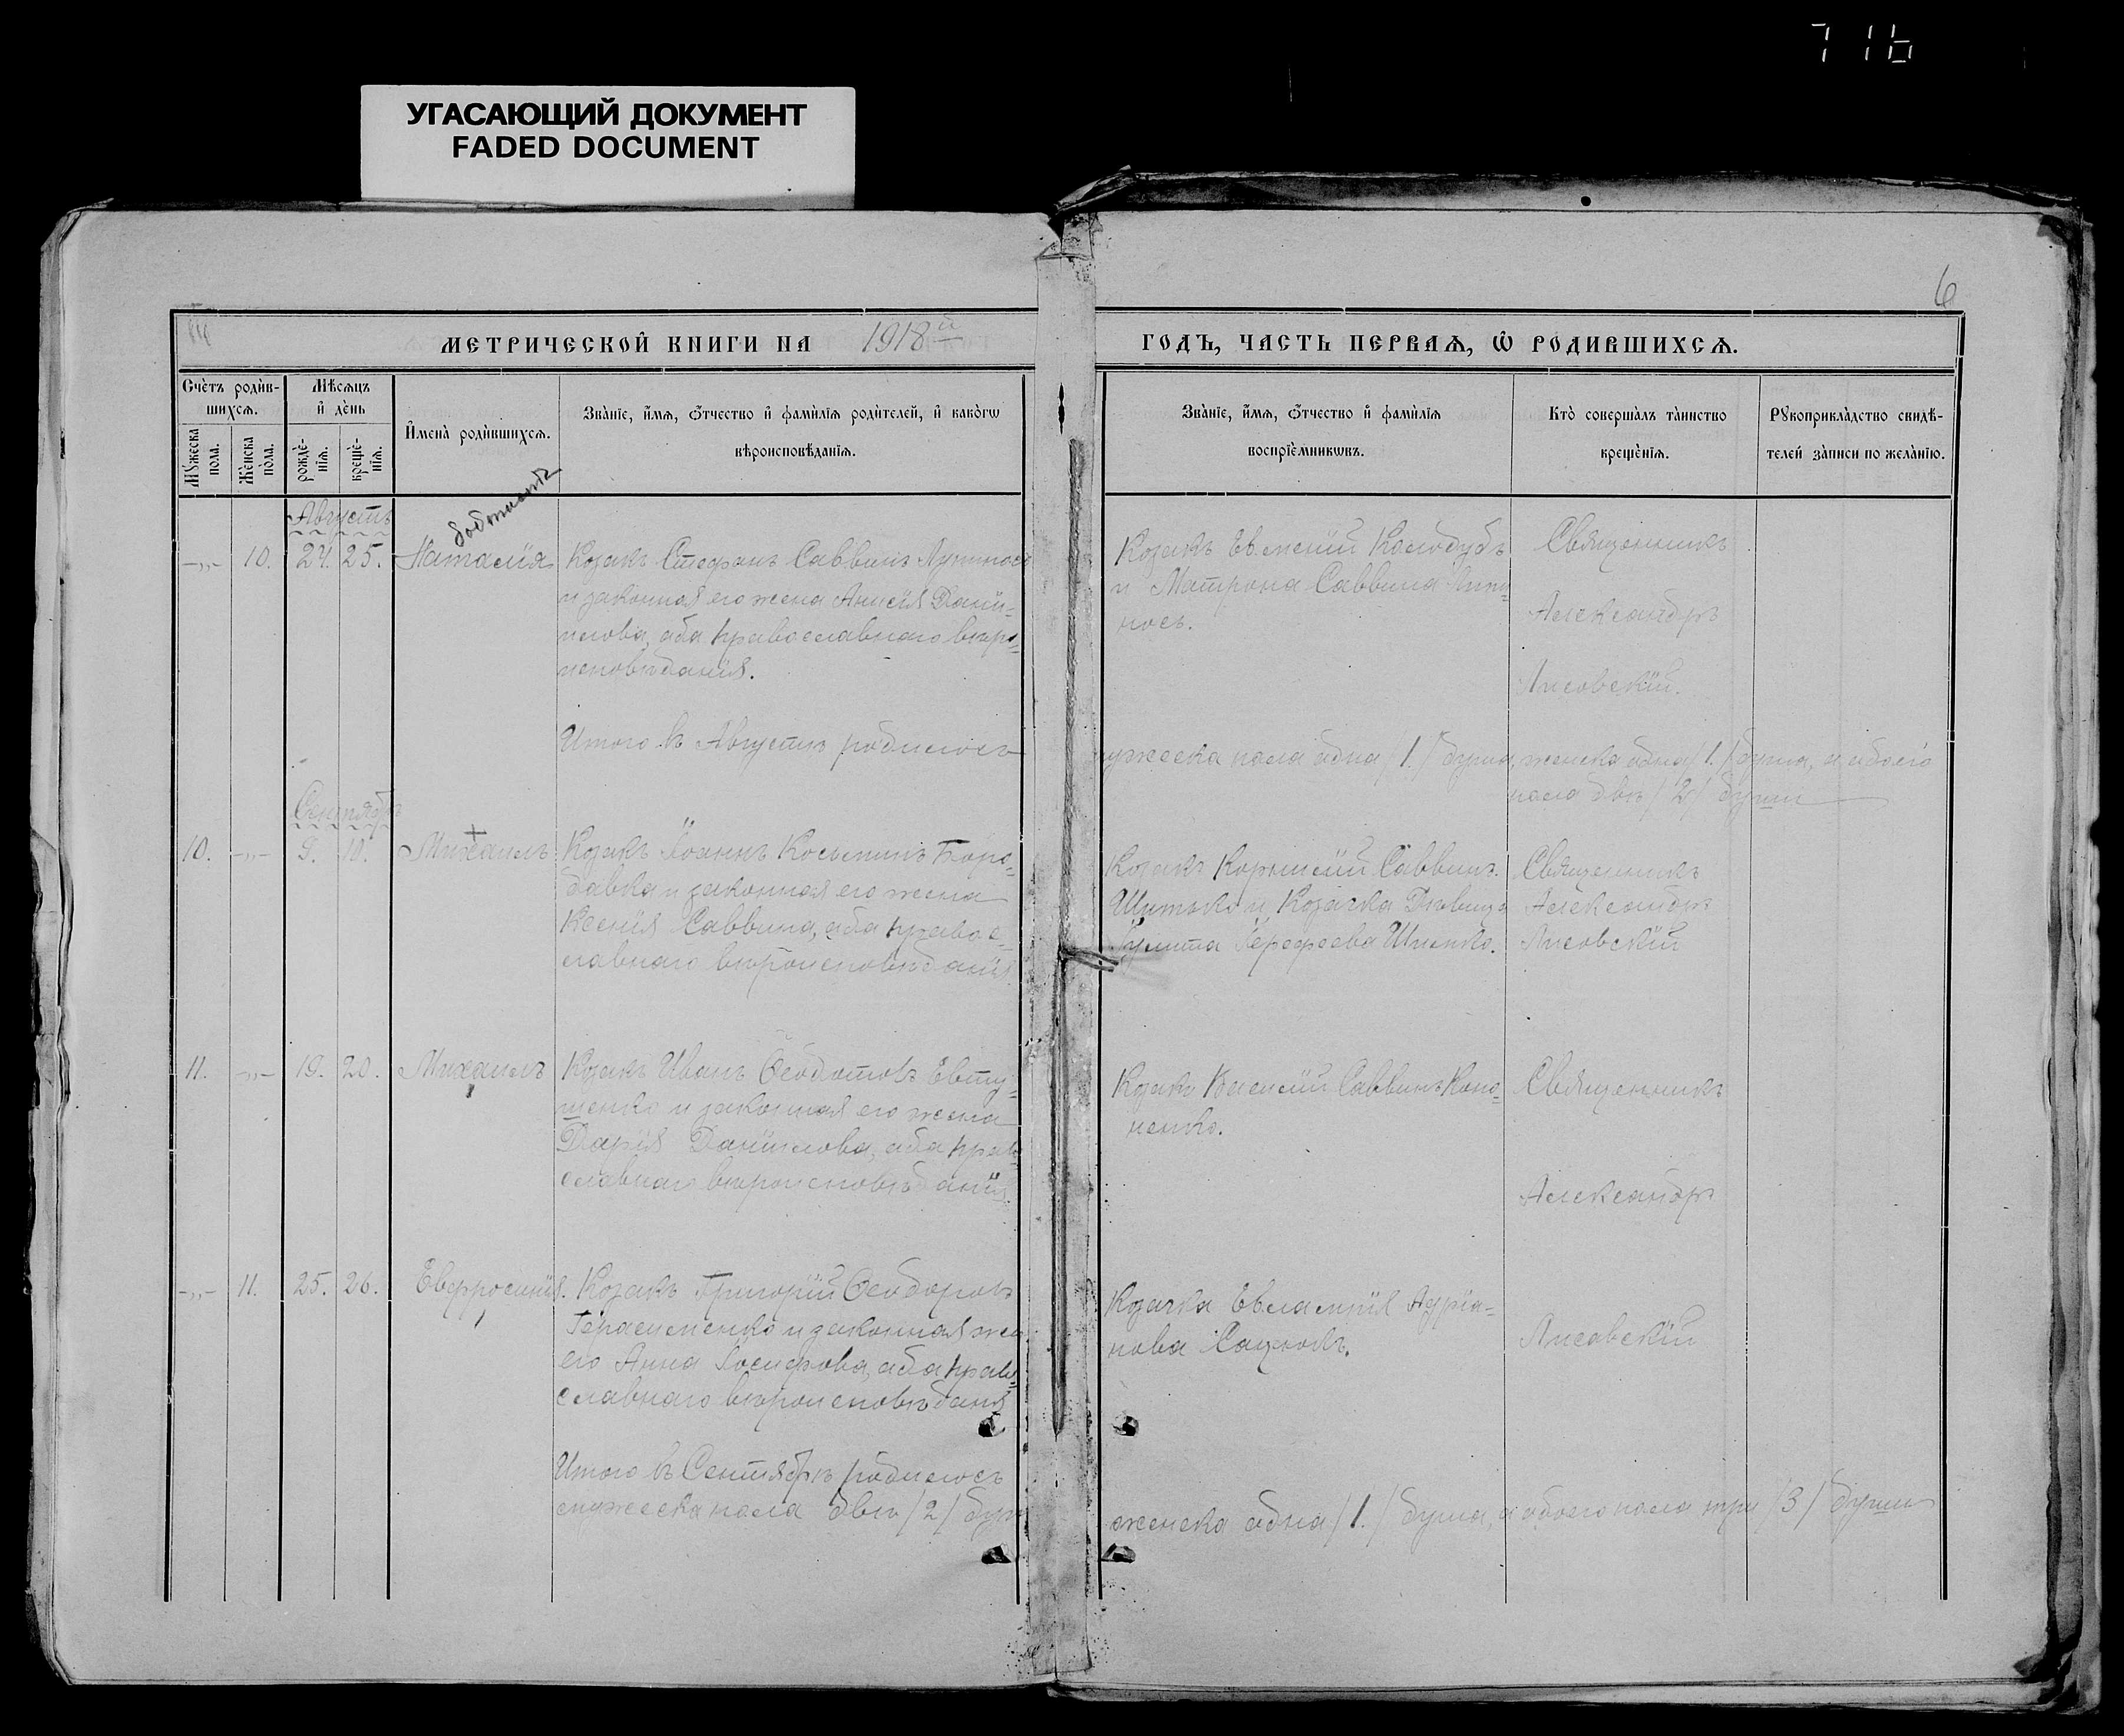 716
УГАСАЮЩИЙ ДОКУМЕНТ
FADED DOCUMENT
6
МЕТРИЧЕСКОЙ КНИГИ НА 1918й ГОДЪ, ЧАСТЬ ПЕРВАЯ, Ѡ РОДИВШИХСЯ.
Счетъ родив-
шихся.
Мужеска пола.
Женска пола.
Мѣсяцъ
и день
рожде-
нія.
креще-
нія.
Имена родившихся.
Званіе, имя, отчество и фамилія родителей, и какогѡ
вѣроисповѣданія.
Званіе, имя, отчество и фамилія
воспріемникѡвъ.
Кто совершалъ таинство
крещенія.
Рукоприкладство свидѣ-
телей записи по желанію.
Августъ
-„- 10. 24. 25. Наталія
Козакъ Стефанъ Саввинъ
и законная его жена Дани-
лова, оба православнаго вѣро-
исповѣданія.
Козакъ Колодубъ
и Матрона Саввина
носъ.
Священникъ
Александръ
Лисовскій.
Итого въ Августѣ родилось
мужеска пола одна /1./ душа, женска одна /1./ душа, а обоего
пола двѣ /2/ души
Сентябрь
10. -„- 9. 10. Михаилъ
Козакъ Іоаннъ Косьминъ Боро-
давка и законная его жена
Ксенія Саввина, оба правос-
лавнаго вѣроисповѣданія
Козакъ Корнилій Саввинъ
и Козачка Дѣвица
Священникъ
Александръ
Лисовскій
11. -„- 19. 20. Михаилъ
Козакъ Иванъ Ѳеодотовъ Евту-
шенко и законная его жена
Дарія Даніилова, оба право-
славнаго вѣроисповѣданія.
Козакъ Василій Саввинъ Коно-
ненко.
Священникъ
Александръ
-„- 11. 25. 26. Евфросинія.
Козакъ Григорій Ѳеодоровъ
Герасименко и законная жена
его Анна Іосифова, оба право-
славнаго вѣроисповѣданія
Козачка Евлампія Адріа-
нова
Лисовскій
Итого въ Сентябрѣ родилось
мужеска пола двѣ /2/ души
женска одна /1./ душа, а обоего пола три /3/ души